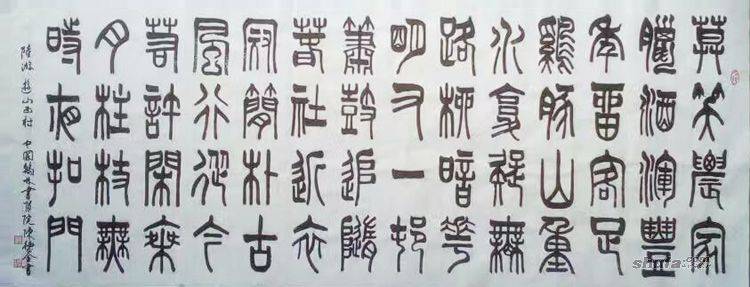 莫笑農家
臘酒渾豐
年留客足
雞豚山重
水復疑無
路柳暗花
明又一邨
簫鼓追隨
春社近衣
冠簡朴古
風存從今
若許閑乘
月拄杖無
時夜扣門
陸游 遊山西村 中國翰林書畫院陳書